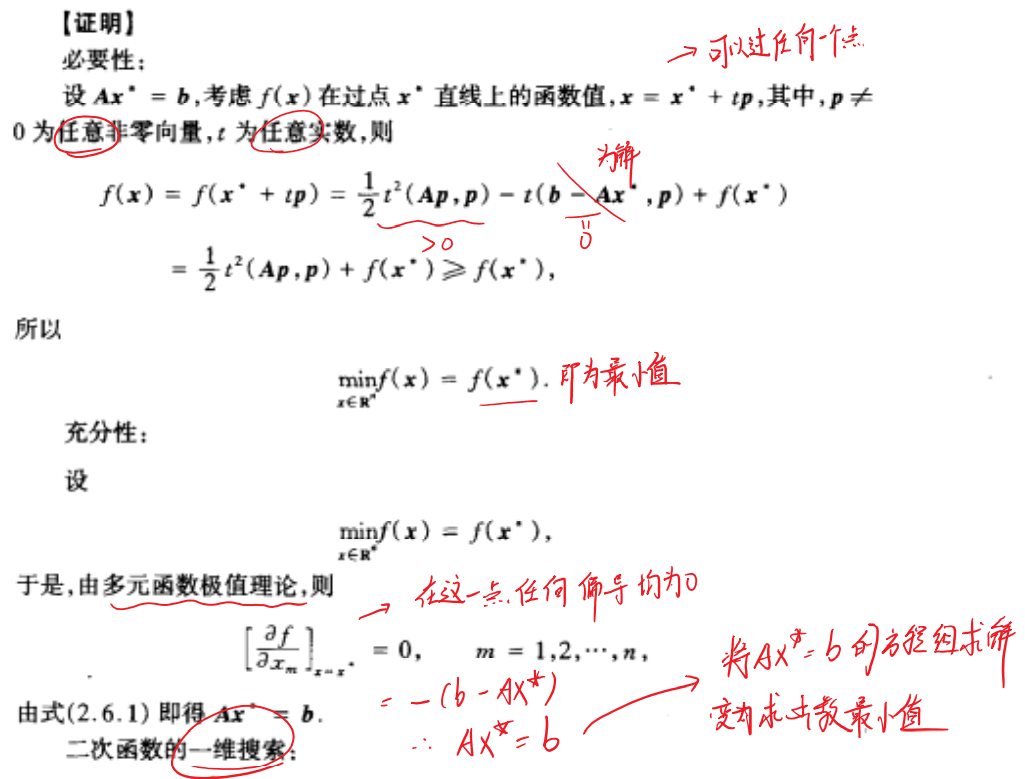 【证明】
必要性:
→ 可以过任何一个点
设 Ax* = b,考虑 f(x) 在过点 x* 直线上的函数值,x = x* + tp,其中,p ≠
0 为任意非零向量,t 为任意实数,则
为解
f(x) = f(x* + tp) = 1/2 t²(Ap,p) - t(b - Ax*,p) + f(x*)
>0
=0
= 1/2 t²(Ap,p) + f(x*) ≥ f(x*),
所以
min f(x) = f(x*). 即为最小值
x∈Rⁿ
充分性:
设
min f(x) = f(x*),
x∈Rⁿ
于是,由多元函数极值理论,则
→ 在这一点,任何偏导均为0
[∂f/∂xₘ]ₓ₌ₓ* = 0, m = 1,2,⋯,n,
= -(b - AX*)
将AX*=b的方程组求解
由式(2.6.1) 即得 Ax* = b.
∴ AX* = b
变为求函数最小值
二次函数的一维搜索: